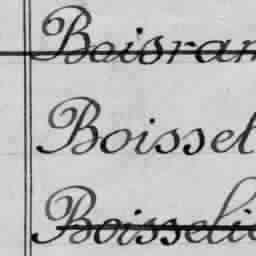 Boisran
Boisset
Boisselie